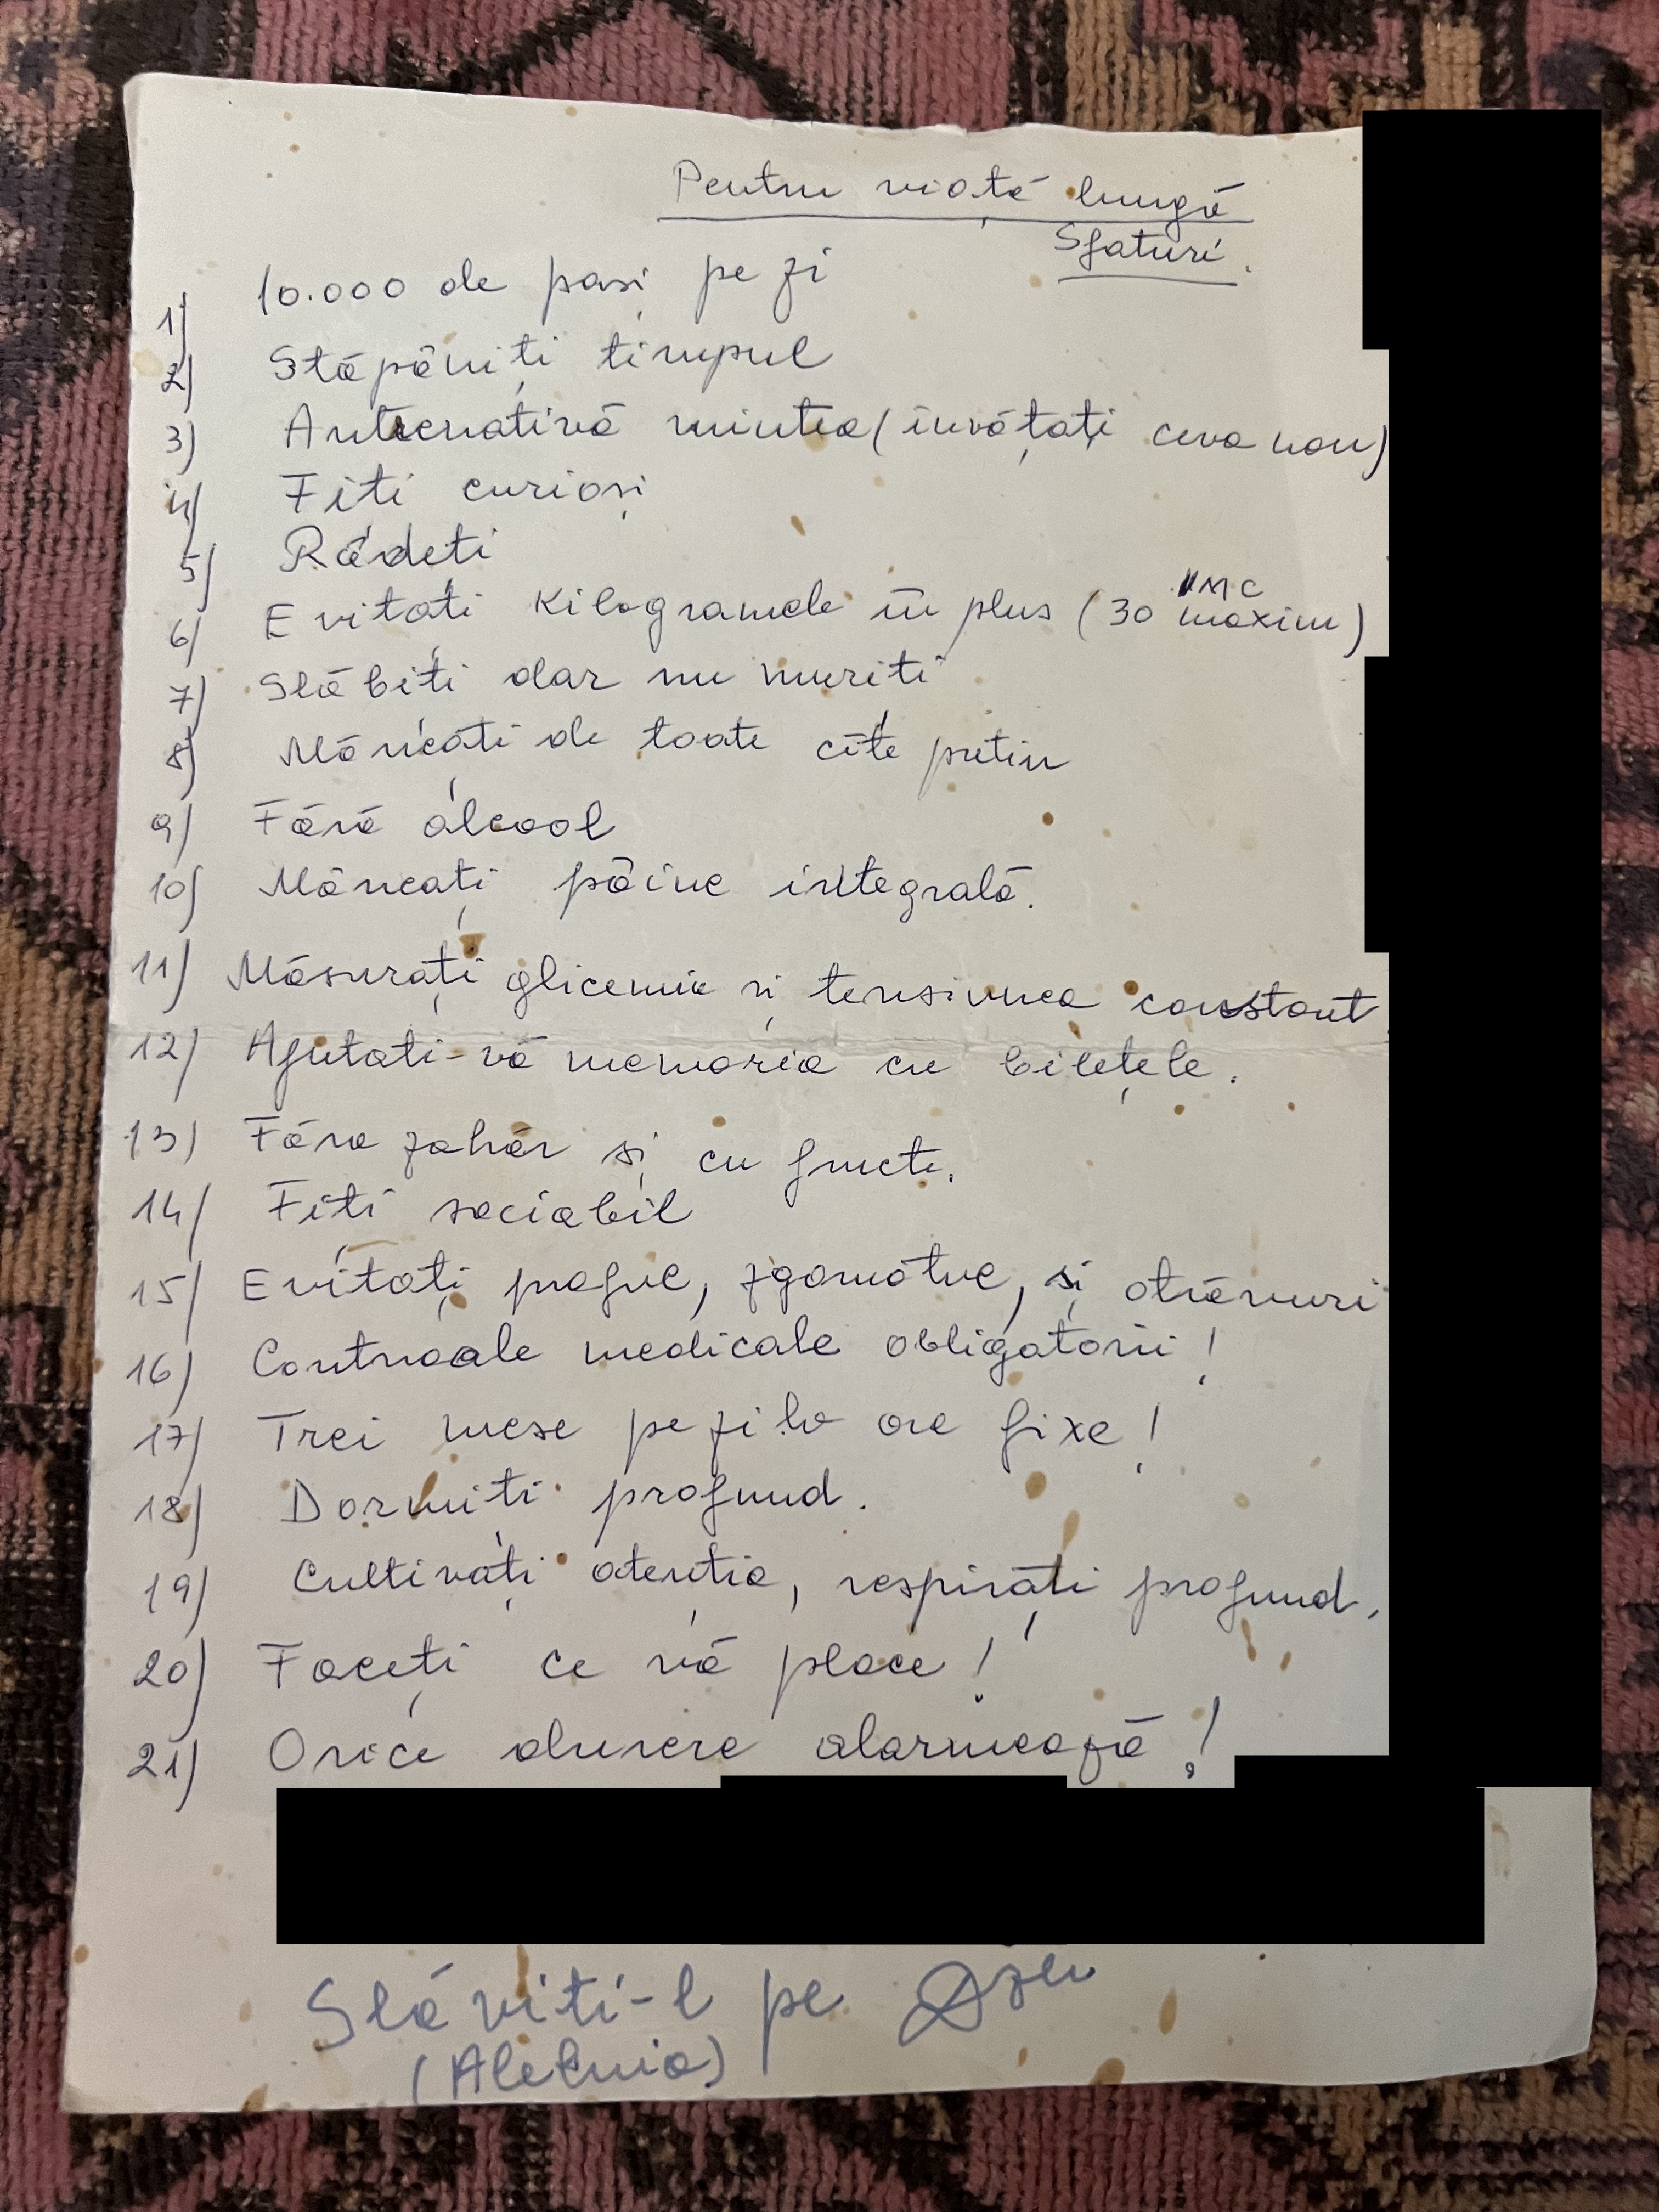 Pentru viață lungă
Sfaturi.
1) 10.000 de pași pe zi
2) Stăpâniți timpul
3) Antrenativă mintea (învățați ceva nou)
4) Fiți curioși
5) Râdeți
6) Evitați kilogramele în plus (30 IMC maxim)
7) Slăbiți dar nu muriți
8) Mâncați de toate cîte puțin
9) Fără alcool
10) Mâncați pâine integrală.
11) Măsurați glicemia și tensiunea constant
12) Ajutați-vă memoria cu bilețele.
13) Făra zahăr și cu fructe.
14) Fiți sociabil
15) Evitați prafue, zgomotue, și otrăvuri
16) Controale medicale obligatorii!
17) Trei mese pe zi la ore fixe!
18) Dormiți profund.
19) Cultivați atenția, respirați profund,
20) Faceți ce vă place!
21) Orice durere alarmează!
Slăviți-l pe Dzeu
(Aleluia)